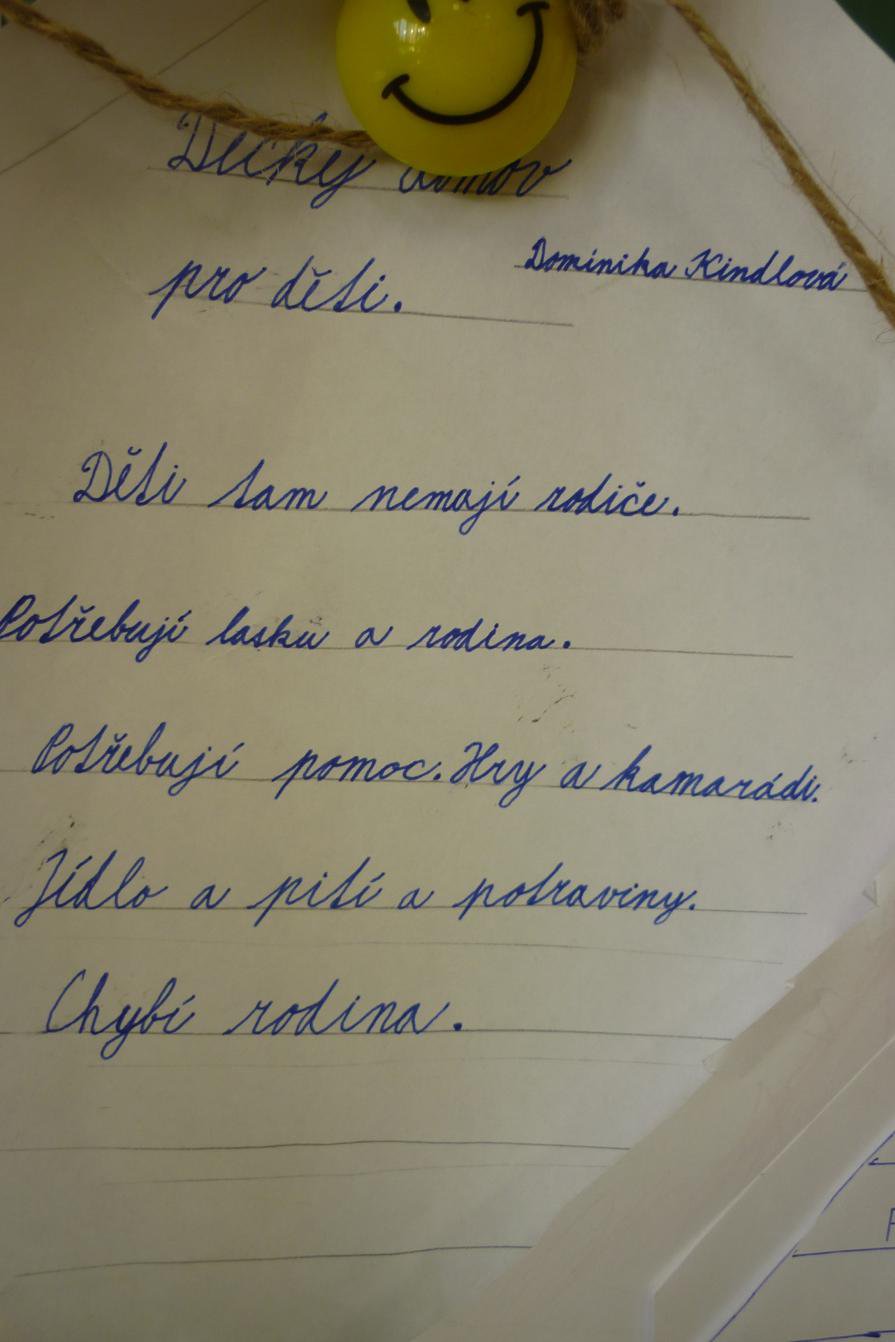 Děcky domov
pro děti.
Dominika Kindlová
Děti tam nemají rodiče.
Potřebují lasku a rodina.
Potřebují pomoc. Hry a kamarádi.
Jídlo a pití a potraviny.
Chybí rodina.